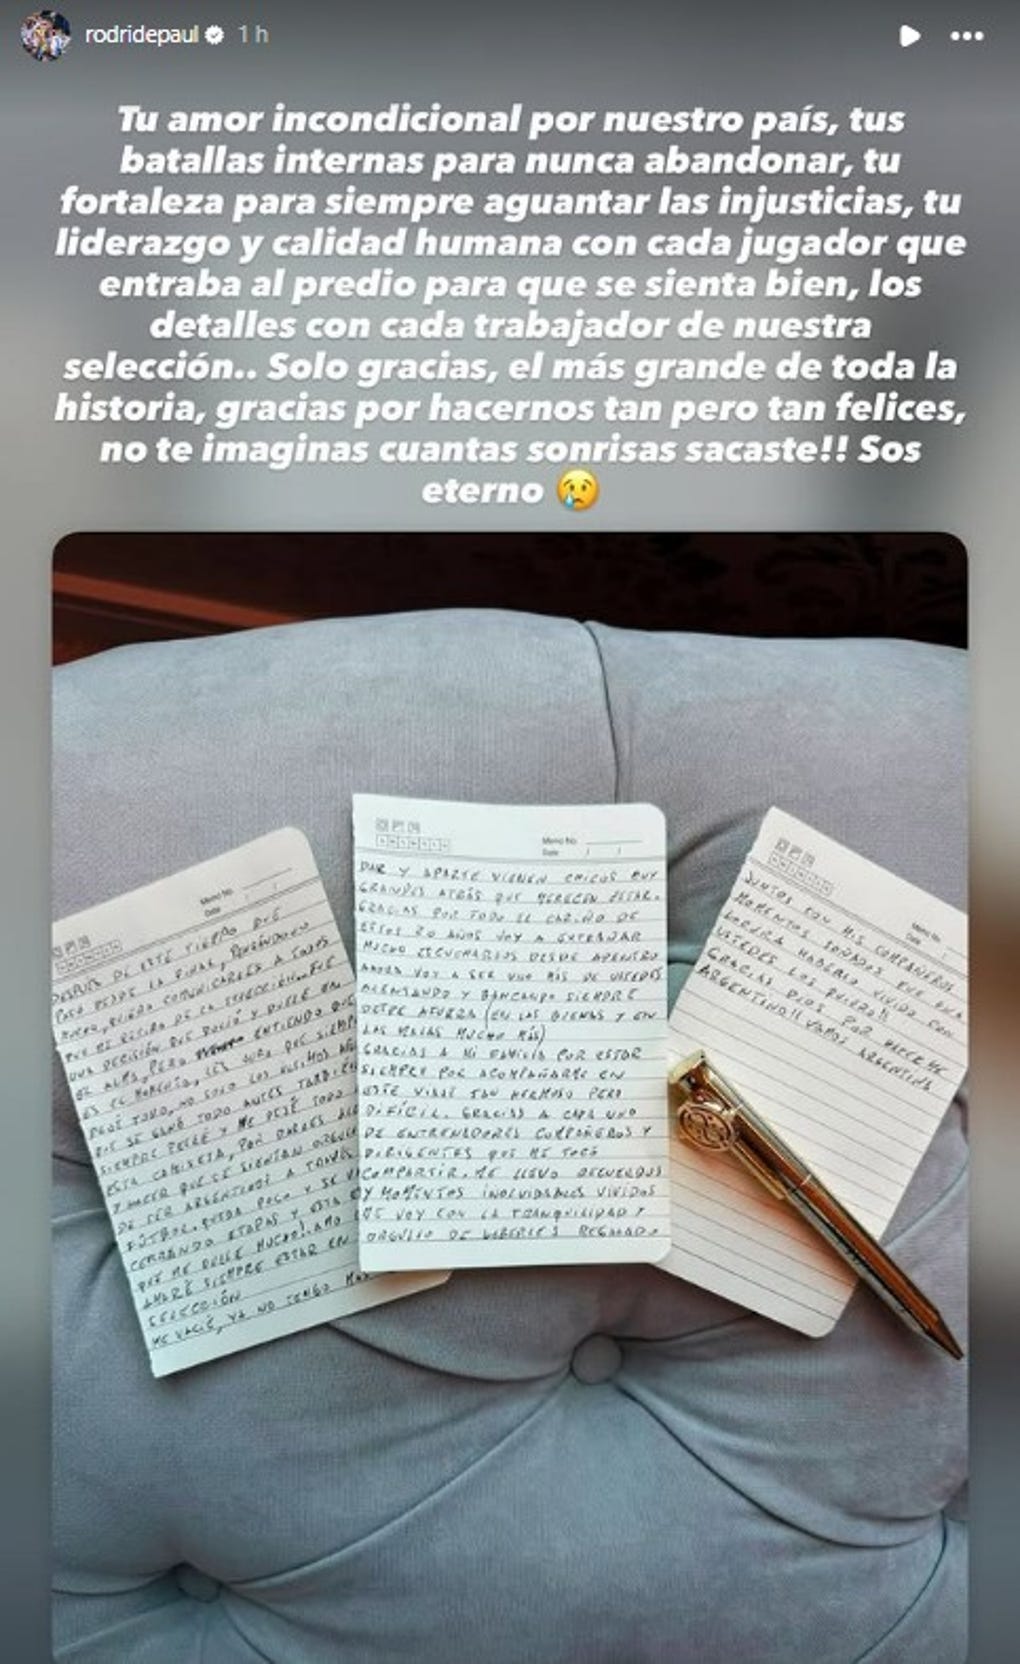 rodridepaul 1 h
Tu amor incondicional por nuestro país, tus
batallas internas para nunca abandonar, tu
fortaleza para siempre aguantar las injusticias, tu
liderazgo y calidad humana con cada jugador que
entraba al predio para que se sienta bien, los
detalles con cada trabajador de nuestra
selección.. Solo gracias, el más grande de toda la
historia, gracias por hacernos tan pero tan felices,
no te imaginas cuantas sonrisas sacaste!! Sos
eterno 😢
Memo No.
Date / /
DESPUÉS DE ESTE TIEMPO QUE
PASÓ DESDE LA FINAL, PENSÁNDOLO
MUCHO, QUIERO COMUNICARLES A TODOS
QUE ME RETIRO DE LA SELECCIÓN. FUE
UNA DECISIÓN QUE DOLIÓ Y DUELE EN
EL ALMA, PERO ENTIENDO QUE
ES EL MOMENTO, LES JURO QUE SIEMPRE
DEJÉ TODO, NO SOLO LOS ÚLTIMOS
QUE SE GANÓ TODO ANTES TAMBIÉN
SIEMPRE PELEÉ Y ME DEJÉ TODO
ESTA CAMISETA, POR DARLES
Y HACER QUE SE SIENTAN
DE SER ARGENTINOS A TRAVÉS
FÚTBOL. QUEDA POCO Y SE
CERRANDO ETAPAS Y ESTA
QUE ME DUELE MUCHO! AMO
AMARÉ SIEMPRE ESTAR EN
SELECCIÓN
ME VACIÉ, YA NO TENGO
Memo No.
Date / /
DAR Y APARTE VIENEN CHICOS MUY
GRANDES ATRÁS QUE MERECEN ESTAR.
GRACIAS POR TODO EL CARIÑO DE
ESTOS 20 AÑOS VOY A EXTRAÑAR
MUCHO ESCUCHARLOS DESDE ADENTRO
AHORA VOY A SER UNO MÁS DE USTEDES
ALENTANDO Y BANCANDO SIEMPRE
DESDE AFUERA (EN LAS BUENAS Y EN
LAS MALAS MUCHO MÁS)
GRACIAS A MI FAMILIA POR ESTAR
SIEMPRE POR ACOMPAÑARME EN
ESTE VIAJE TAN HERMOSO PERO
DIFÍCIL. GRACIAS A CADA UNO
DE ENTRENADORES COMPAÑEROS Y
DIRIGENTES QUE ME TOCÓ
COMPARTIR. ME LLEVO RECUERDOS
Y MOMENTOS INOLVIDABLES VIVIDOS
ME VOY CON LA TRANQUILIDAD Y
ORGULLO DE HABERLES REGALADO
Memo No.
Date /
JUNTOS CON MIS COMPAÑEROS
MOMENTOS SOÑADOS QUE
LOCURA HABERLO VIVIDO CON
USTEDES LOS QUIERO!!
GRACIAS DIOS POR HACERME
ARGENTINO!! VAMOS ARGENTINA